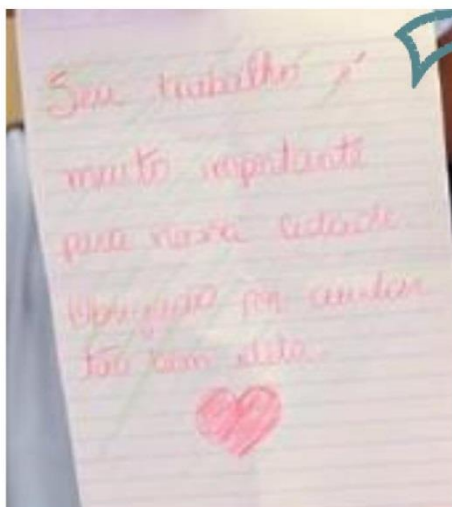 Seu trabalho é
muito importante
para nossa cidade.
Obrigado por cuidar
tão bem dela.